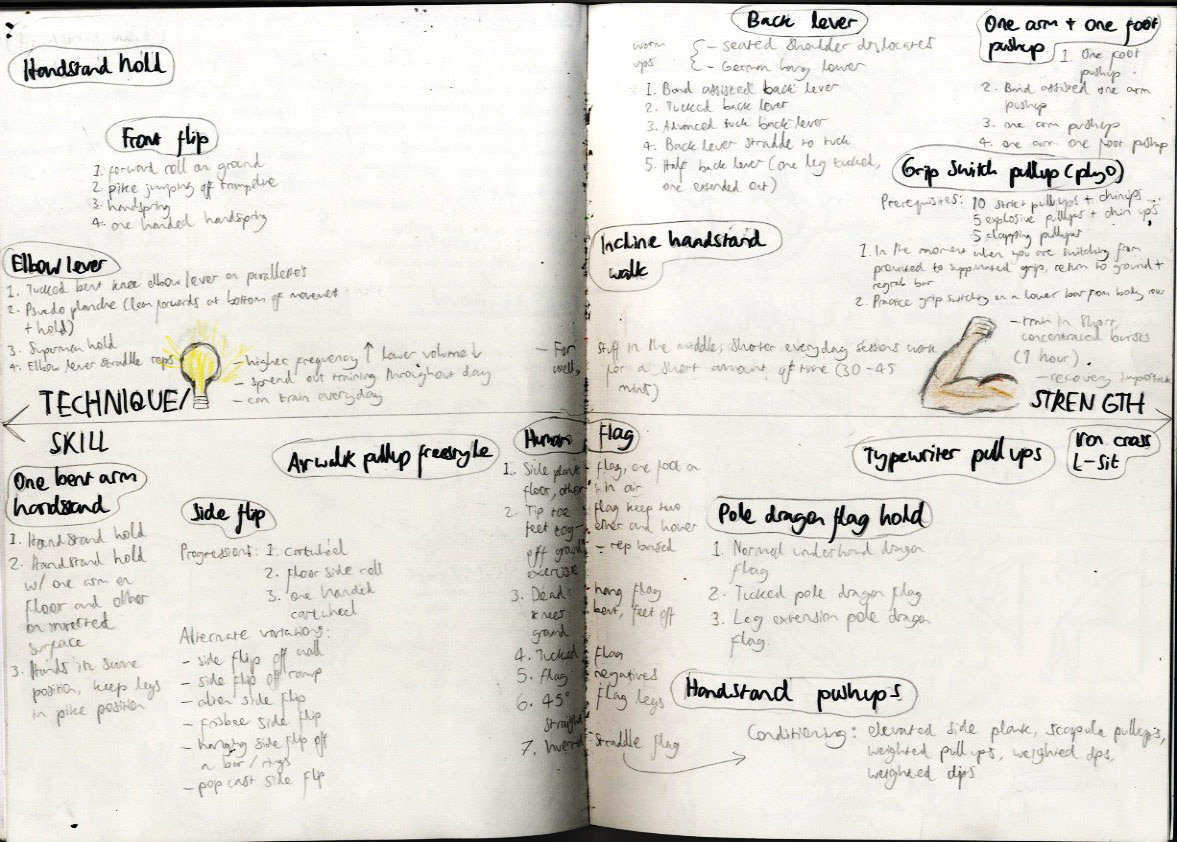 Handstand hold
Front flip
1. forward roll on ground
2. pike jumping off trampoline
3. handspring
4. one handed handspring
Elbow lever
1. Tucked bent knee elbow lever on parallettes
2. Psuedo planche (lean forwards at bottom of movement
+ hold)
3. Superman hold
4. Elbow lever straddle reps
- higher frequency ↑ lower volume ↓
- spread out training throughout day
- can train everyday
TECHNIQUE/
SKILL
Back lever
warm
ups
- seated shoulder dislocates
- German hang lower
1. Band assisted back lever
2. Tucked back lever
3. Advanced tuck back lever
4. Back lever straddle to tuck
5. Half back lever (one leg tucked,
one extended out)
One arm + one foot
pushup
1. One foot
pushup
2. Band assisted one arm
pushup
3. one arm pushups
4. one arm one foot pushup
Grip switch pullup (plyo)
Prerequisites: 10 strict pullups + chinups
5 explosive pullups + chin ups
5 clapping pullups
1. In the moment when you are switching from
pronated to suppinated grips, return to ground +
regrab bar
2. Practice grip switching on a lower bar from body row
Incline handstand
walk
- For stuff in the middle, shorter everyday sessions work
well, for a short amount of time (30-45
mins)
- train in short
concentrated bursts
(1 hour)
- recovery important
STRENGTH
One bent arm
handstand
1. Handstand hold
2. Handstand hold
w/ one arm on
floor and other
on
surface
3. Hands in same
position, keep legs
in pike position
Airwalk pullup freestyle
Side flip
Progressions: 1. cartwheel
2. floor side roll
3. one handed
cartwheel
Alternate variations:
- side flip off wall
- side flip off ramp
- alien side flip
- frisbee side flip
- hanging side flip off
a bar/rings
- pop cast side flip
Human Flag
1. Side plank flag, one foot on
floor, other in air
2. Tip toe flag keep two
feet together and hover
off ground - rep based
exercise
3. Dead hang flag
knees bent, feet off
ground
4. Tucked flag
5. Flag negatives
6. 45° flag legs
straight
7. Invert straddle flag
Typewriter pull ups
Iron cross
L-sit
Pole dragon flag hold
1. Normal underhand dragon
flag
2. Tucked pole dragon flag
3. Leg extension pole dragon
flag.
Handstand pushups
Conditioning: elevated side plank, scapula pullups,
weighted pull ups, weighted dps,
weighted dips